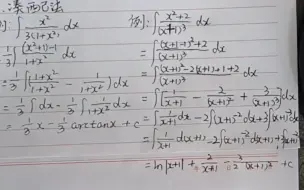 二、凑西己法
例: ∫ x²/3(1+x²) dx
= 1/3 ∫ (x²+1)-1/(1+x²) dx
= 1/3 ∫ (1+x²/1+x² - 1/1+x²) dx
= 1/3 ∫ dx - 1/3 ∫ 1/1+x² dx
= 1/3 x - 1/3 arctanx + c
例: ∫ x²+2/(x+1)³ dx
= ∫ (x+1-1)²+2/(x+1)³ dx
= ∫ (x+1)²-2(x+1)+1+2/(x+1)³ dx
= ∫ [1/x+1 - 2/(x+1)² + 3/(x+1)³] dx
= ∫ 1/x+1 dx - 2∫(x+1)⁻² dx + 3∫
= ∫ 1/x+1 d(x+1) - 2∫(x+1)⁻² d(x+1) + 3∫
= ln|x+1| + 2/x+1 - 3/2 (x+1)⁻² + c